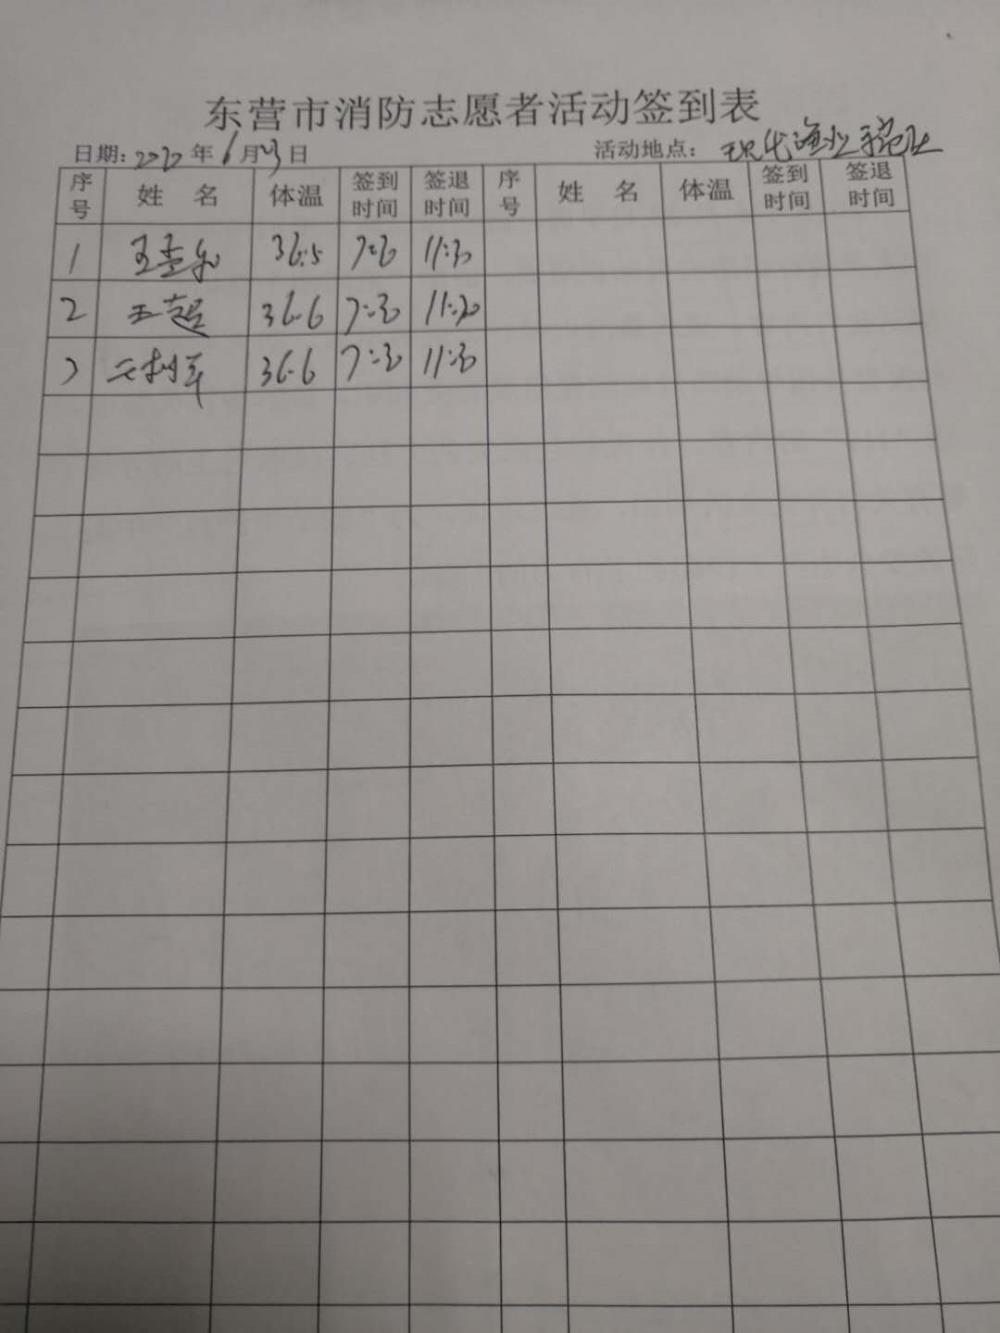 东营市消防志愿者活动签到表
日期: 2020 年 6 月 23 日 活动地点: 现代渔业示范区
序号 姓 名 体温 签到时间 签退时间 序号 姓 名 体温 签到时间 签退时间
1 36.5 7:30 11:30
2 王超 36.6 7:30 11:30
3 36.6 7:30 11:30